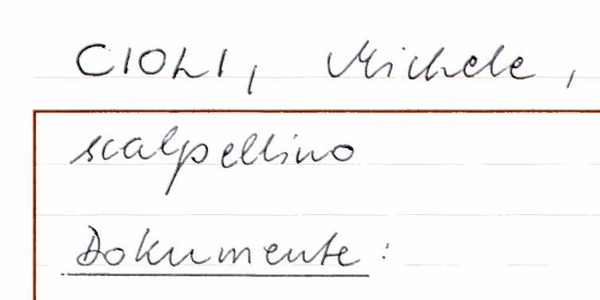 CIOLI, Michele,
scalpellino
Dokumente: